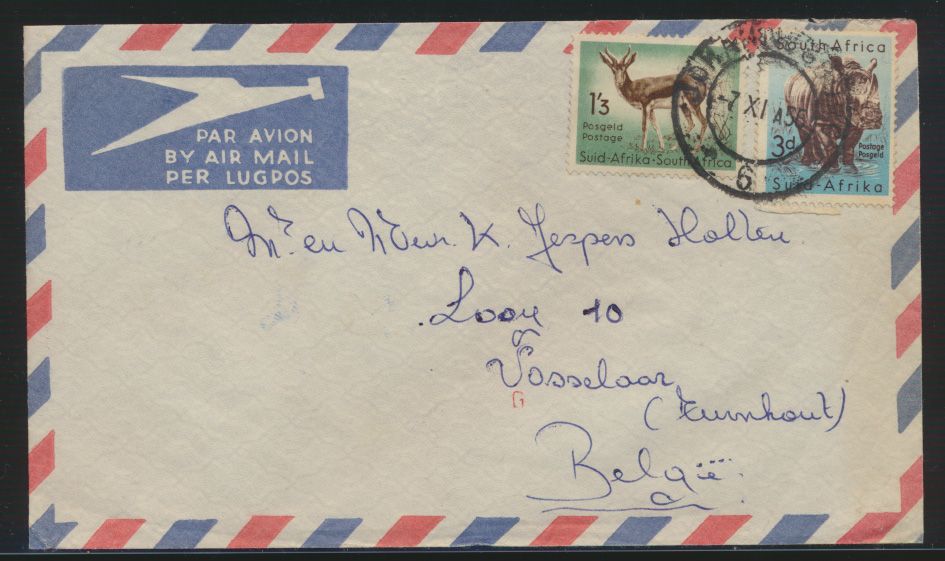 PAR AVION
BY AIR MAIL
PER LUGPOS
1'3
Posgeld
Postage
Suid-Afrika · South Africa
South Africa
3d
Postage
Posgeld
Suid-Afrika
7 XI
6
Mr en Mevr. K. Jespers Holten
Loox 10
Vosselaar
(Turnhout)
België